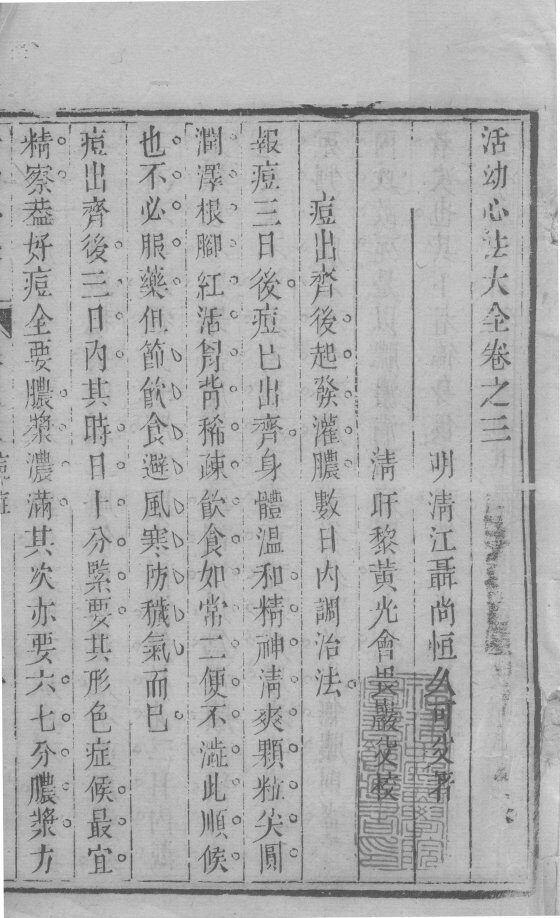 活幼心法大全卷之三
明淸江聶尚恒久可父著
淸旴黎黃光會畏巖父校
痘出齊後起發灌膿數日內調治法
報痘三日後痘已出齊身體溫和精神淸爽顆粒尖圓
潤澤根腳紅活胷背稀疎飮食如常二便不澁此順候
也不必服藥但節飮食避風寒防穢氣而已
痘出齊後三日內其時日十分緊要其形色症候最宜
精察葢好痘全要膿漿濃滿其次亦要六七分膿漿方